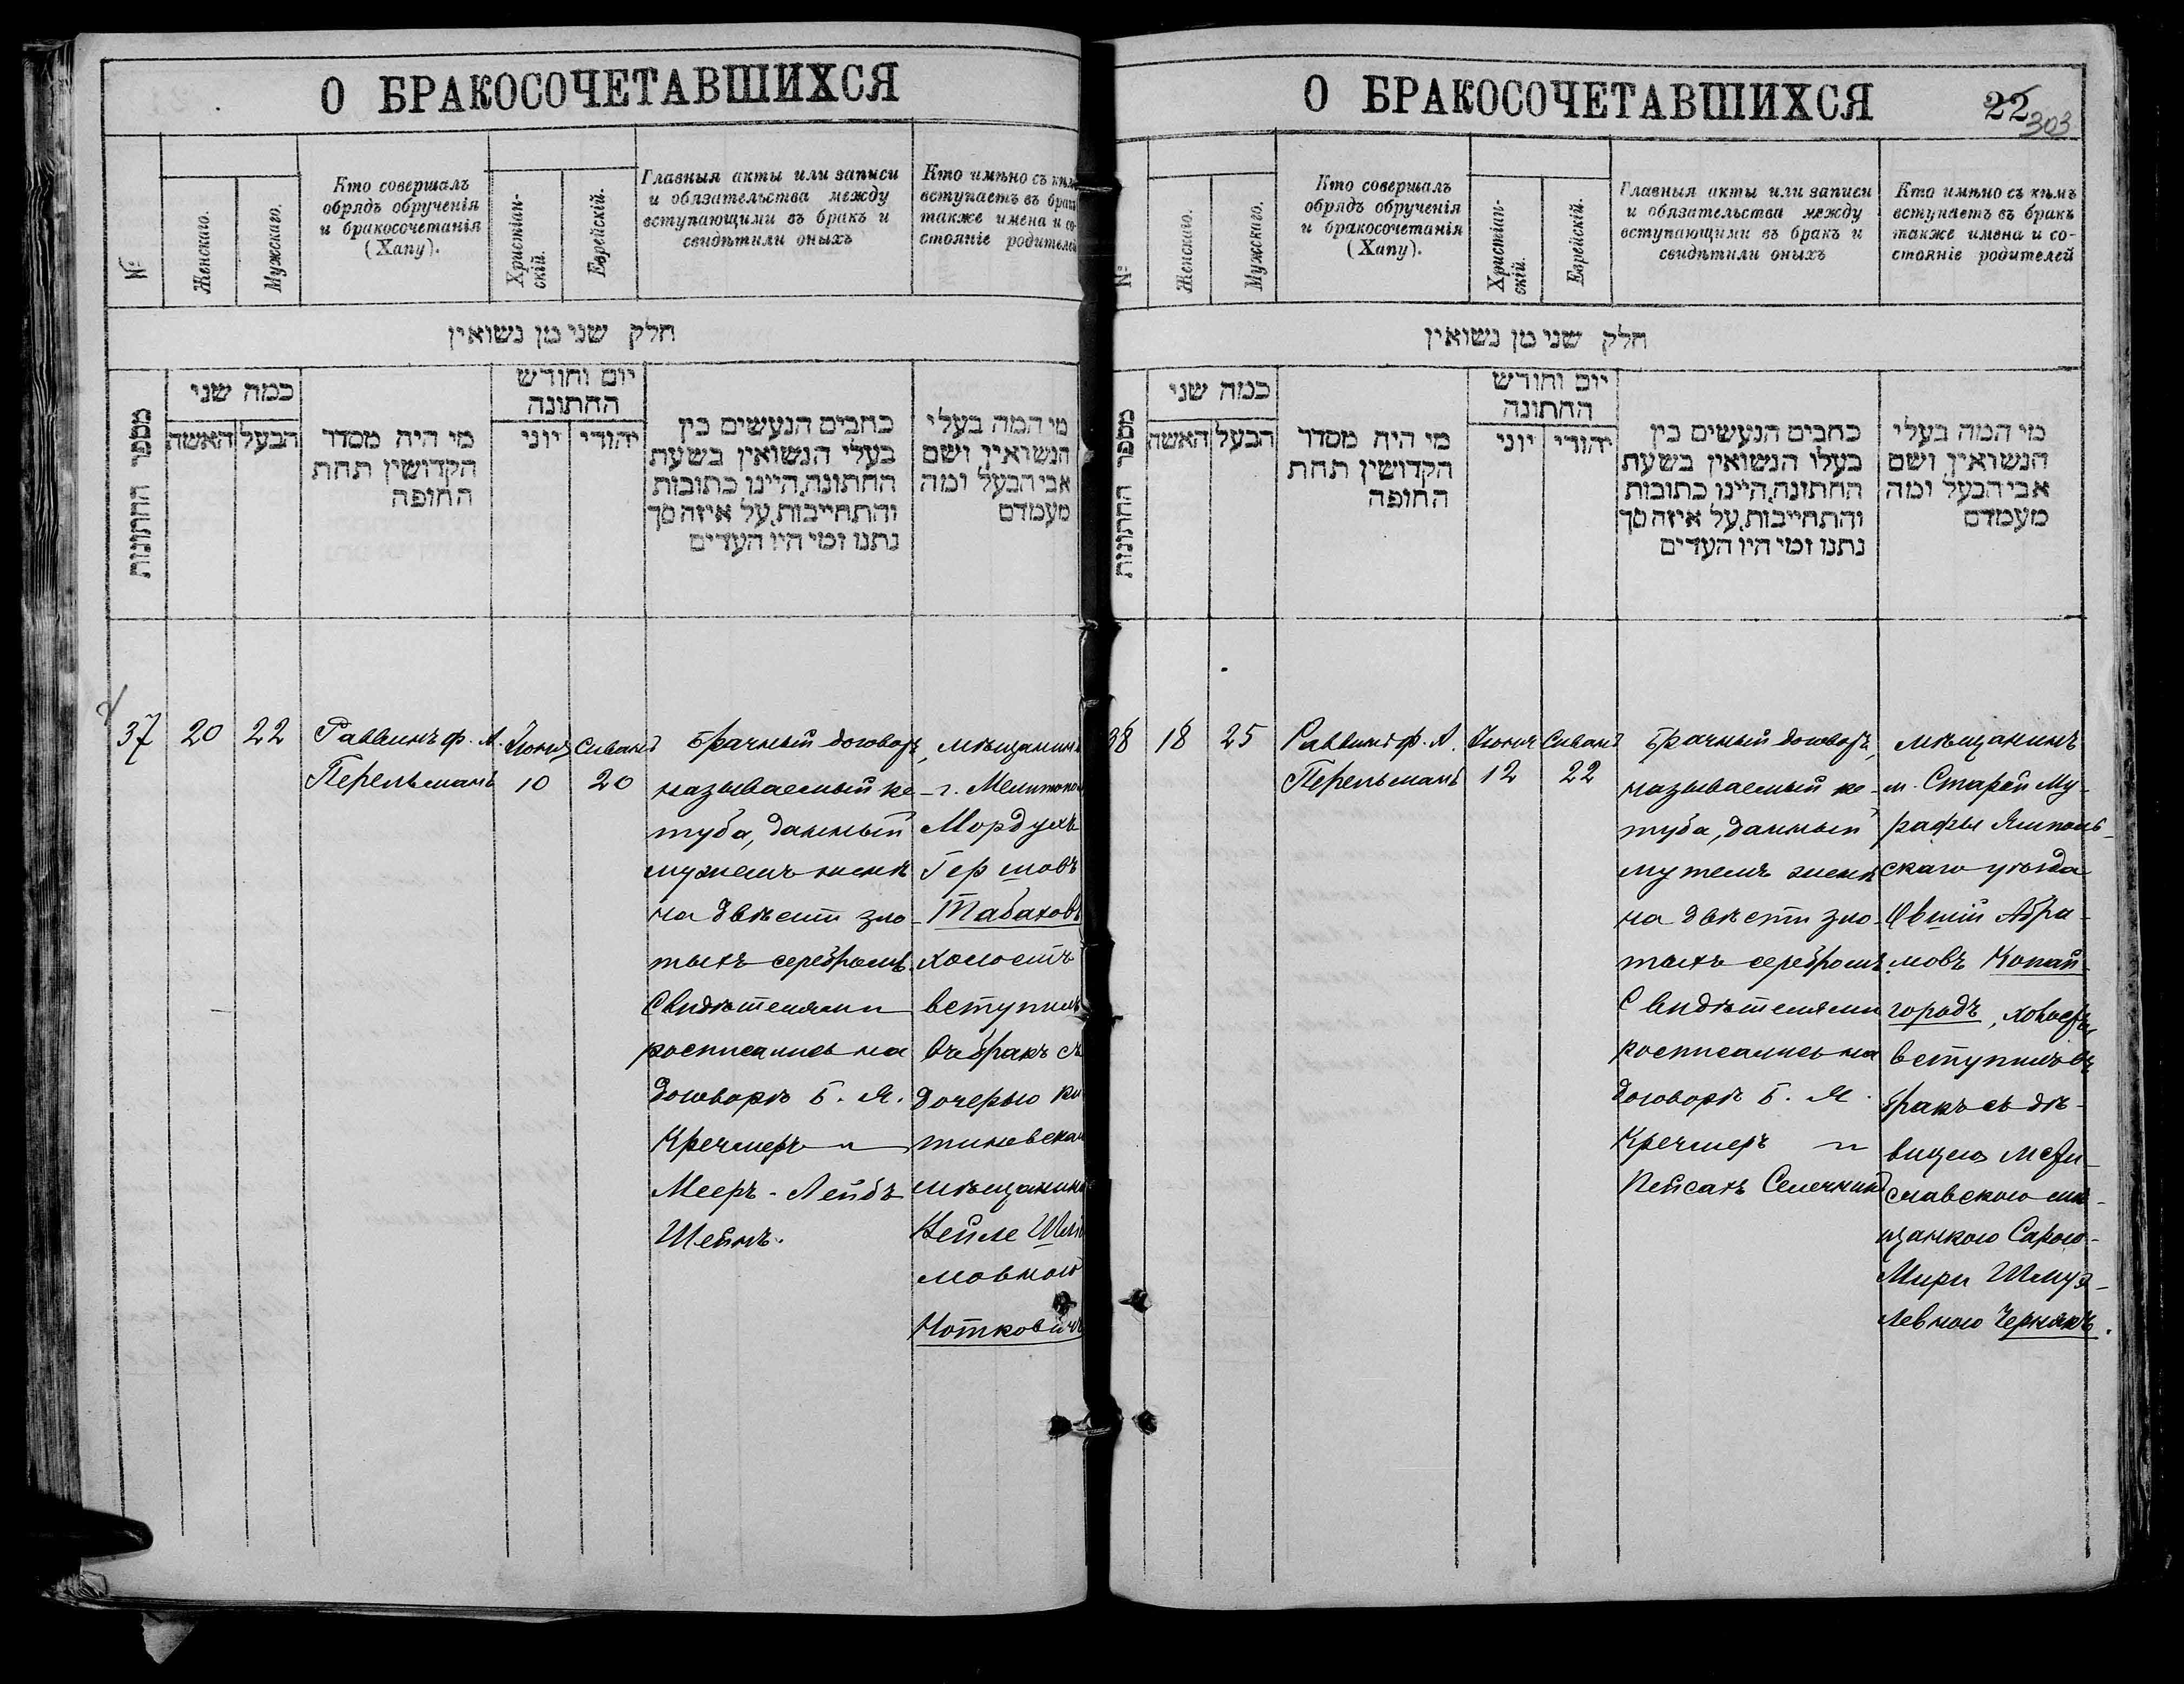 О БРАКОСОЧЕТАВШИХСЯ
№
Женскаго.
Мужскаго.
Кто совершалъ
обрядъ обрученія
и бракосочетанія
(Хапу).
Христіан-
скій.
Еврейскій.
Главныя акты или записи
и обязательства между
вступающими въ бракъ и
свидѣтили оныхъ
Кто имѣно съ кѣмъ
вступаетъ въ бракъ
также имена и со-
стояніе родителей
חלק שני מן נשואין
מספר החתונות
כמה שני
האשה
הבעל
מי היה מסדר
הקדושין תחת
החופה
יום וחודש
החתונה
יוני
יהודי
כתבים הנעשים בין
בעלי הנשואין בשעת
החתונה,היינו כתובות
והתחייבות,על איזה סך
נתנו ומי היו העדים
מי המה בעלי
הנשואין ושם
אבי הבעל ומה
מעמדם
37
20
22
Раввинъ ф. А.
Перельманъ
Іюня
10
Сивана
20
Брачный договоръ,
называемый ке-
туба, данный
мужемъ женѣ
на двѣсти зло-
тыхъ серебромъ.
Свидѣтелями
росписались на
договорѣ Б. Я.
Кречмеръ и
Мееръ-Лейбъ
Шейнъ.
мѣщанинъ
г. Мелитопол
Мордухъ
Гершовъ
Табаховъ
холостъ
вступилъ
въ бракъ съ
дочерью
мѣщанина
Шлио
мовною
Ноткович
О БРАКОСОЧЕТАВШИХСЯ
22
303
№
Женскаго.
Мужскаго.
Кто совершалъ
обрядъ обрученія
и бракосочетанія
(Хапу).
Христіан-
скій.
Еврейскій.
Главныя акты или записи
и обязательства между
вступающими въ бракъ и
свидѣтили оныхъ
Кто имѣно съ кѣмъ
вступаетъ въ бракъ
также имена и со-
стояніе родителей
חלק שני מן נשואין
מספר החתונות
כמה שני
האשה
הבעל
מי היה מסדר
הקדושין תחת
החופה
יום וחודש
החתונה
יוני
יהודי
כתבים הנעשים בין
בעלי הנשואין בשעת
החתונה,היינו כתובות
והתחייבות,על איזה סך
נתנו ומי היו העדים
מי המה בעלי
הנשואין ושם
אבי הבעל ומה
מעמדם
38
18
25
Раввинъ ф. А.
Перельманъ
Іюня
12
Сивана
22
Брачный договоръ,
называемый ке-
туба, данный
мужемъ женѣ
на двѣсти зло-
тыхъ серебромъ.
Свидѣтелями
росписались на
договорѣ Б. Я.
Кречмеръ и
Пейсахъ
мѣщанинъ
м. Старой Му-
рафы Ямполь-
скаго уѣзда
Овшій Абра-
мовъ Копай-
городъ, холостъ
вступилъ въ
бракъ съ дѣ-
вицею Мсти-
славскою мѣ-
щанкою Сарою-
Мири Шмуэ-
левною Чернякъ.